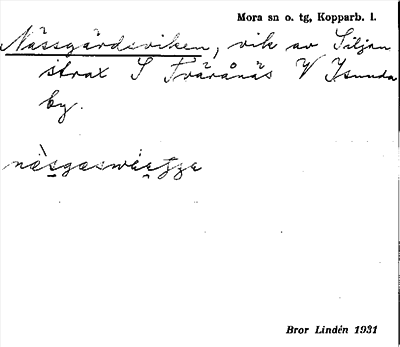 Mora sn o. tg, Kopparb. l.
Nässgårdsviken, vik av Siljan
strax S Tvåränäs V Isunda
by.
Bror Lindén 1931